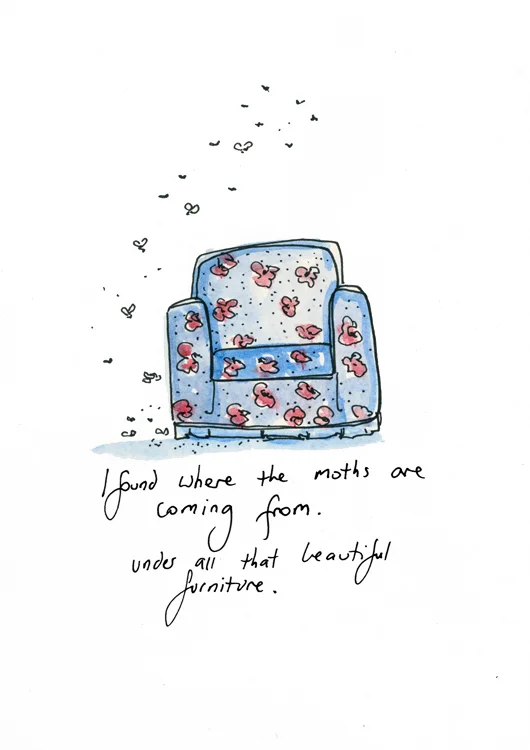 I found where the moths are
coming from.
under all that beautiful
furniture.